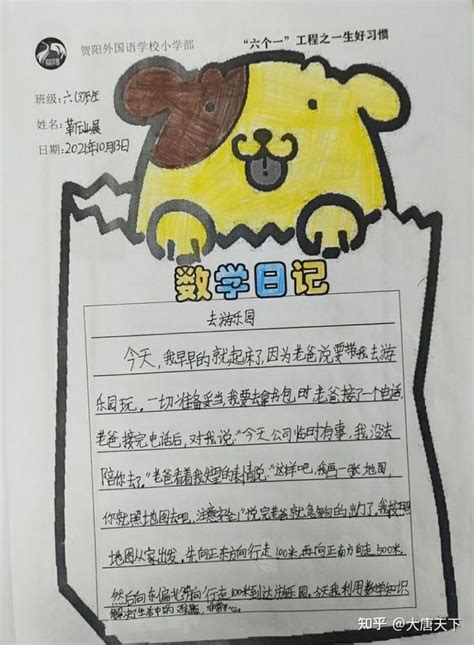 贺阳外国语学校小学部
“六个一”工程之一生好习惯
班级:六
姓名:
日期:2021年10月13日
数学日记
去游乐园
今天,我早早的就起床了,因为老爸说要带我去游
乐园玩,一切准备妥当,我要去拿书包时,老爸接了一个电话,
老爸接完电话后,对我说:“今天公司临时有事,我没法
陪你去了。”老爸看着我失望的表情说:“这样吧,我画一张地图,
你就照地图去吧,注意安全!”说完老爸就急匆匆的出门了,我按照
地图从家出发。先向正东方向行走100米,再向正南方向走500米,
然后向东偏北方向行走100米到达游乐园。今天我利用数学知识
解决了生活中的难题,
知乎 @大唐天下